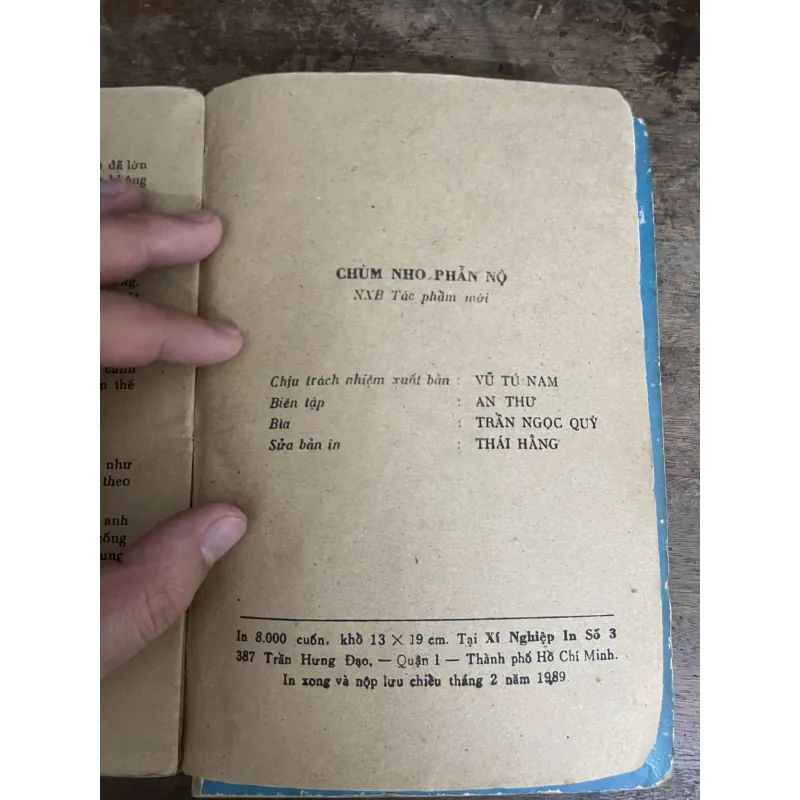 đã lờn
không
cảnh
n thế
như
theo
anh
CHÙM NHO PHẪN NỘ
NXB Tác phẩm mới
Chịu trách nhiệm xuất bản : VŨ TÚ NAM
Biên tập : AN THƯ
Bìa : TRẦN NGỌC QUỲ
Sửa bản in : THÁI HẰNG
In 8.000 cuốn, khổ 13 × 19 cm. Tại Xí Nghiệp In Số 3
387 Trần Hưng Đạo, — Quận 1 — Thành phố Hồ Chí Minh.
In xong và nộp lưu chiều tháng 2 năm 1989